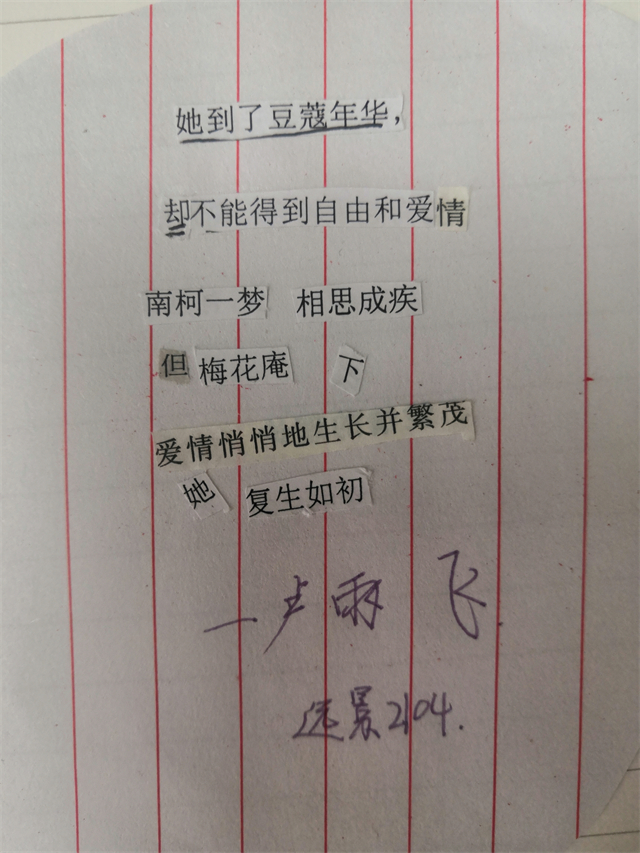 她到了豆蔻年华，
却不能得到自由和爱情
南柯一梦 相思成疾
但梅花庵 下
爱情悄悄地生长并繁茂
她 复生如初
—卢雨飞
远景2104.